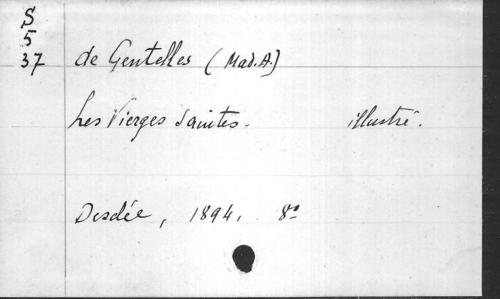 S
5
37 de Gentelles (Mad. A.)
Les Vierges Saintes. illustré.
Desclée, 1894. 8º